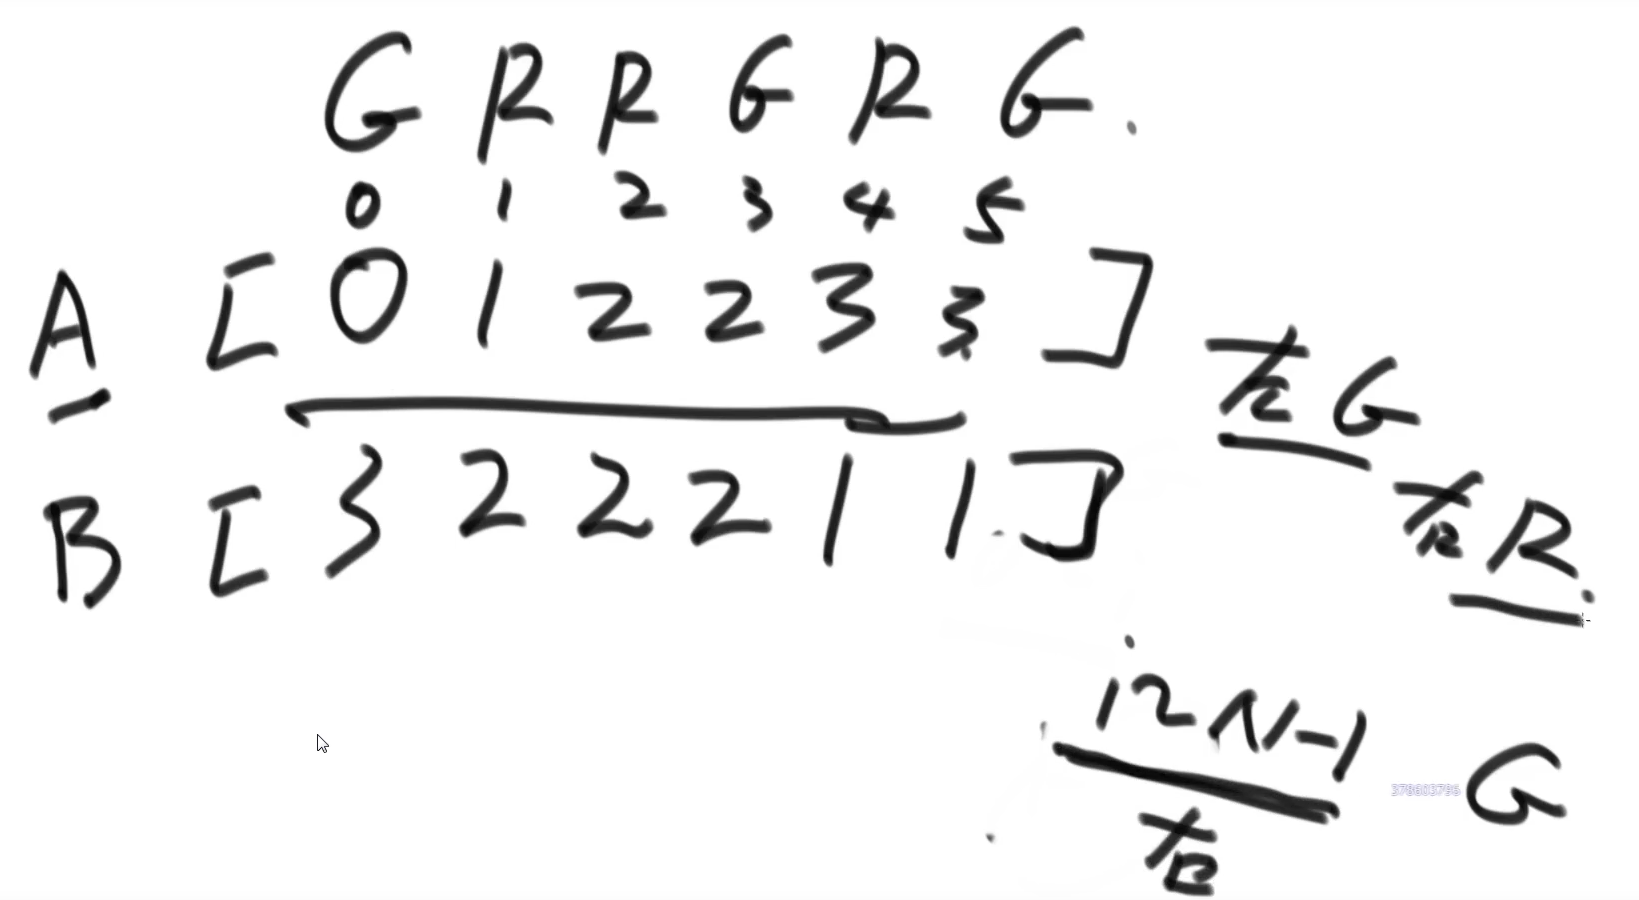 G R R G R G.
0 1 2 3 4 5
A [ 0 1 2 2 3 3 ] 右 G
B [ 3 2 2 2 1 1 ] 左 R
N-1 G
378603796